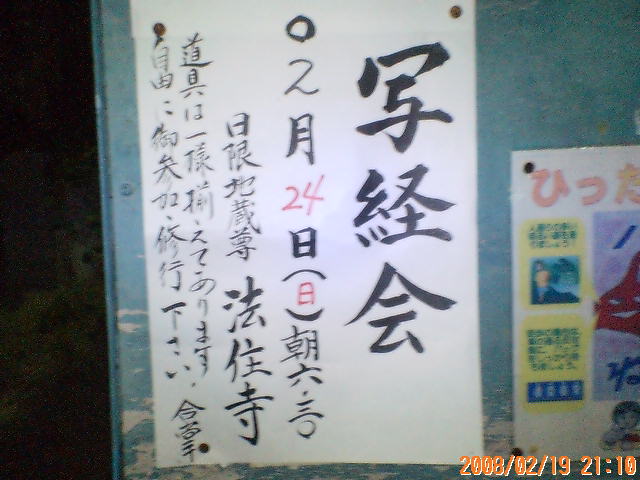 写経会
○2月24日(日)朝六.三〇
日限地蔵尊 法住寺
道具は一様揃えてあります。
自由に御参加、修行下さい、合掌
ひった
2008/02/19 21:10